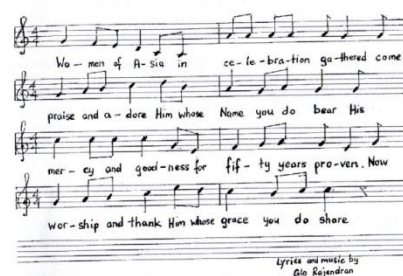 Wo-men of A-sia in ce-le-bra-tion ga-thered come
praise and a-dore Him whose Name you do bear His
mer-cy and good-ness for fif-ty years pro-ven. Now
wor-ship and thank Him whose grace you do share
Lyrics and music by
Glo Rajendran